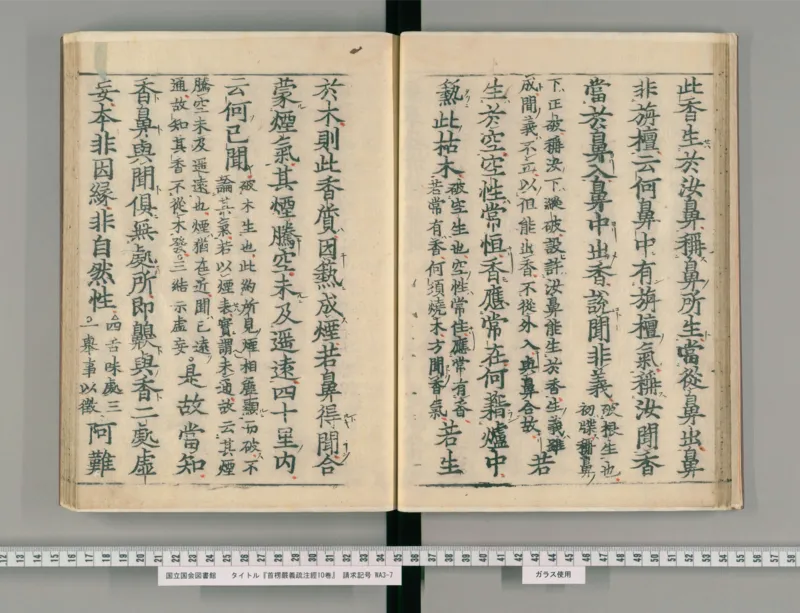 此香生於汝鼻稱鼻所生當從鼻出鼻
非旃檀云何鼻中有旃檀氣稱汝聞香
當於鼻入鼻中出香說聞非義
破根生也
初牒稱鼻
下正破稱汝下縱破設許汝鼻能生於香生義雖
成聞義不可以但能出香不從外入與鼻合故
若
生於空空性常恒香應常在何藉爐中
爇此枯木
破空生也空性常住應常有香
若常有香何須燒木方聞香氣
若生
於木則此香質因爇成煙若鼻得聞合
蒙煙氣其煙騰空未及遥遠四十里内
云何已聞
破木生也此約所見煙相麤顯而破不
論其氣若以煙表實謂未通故云其煙
騰空未及遥遠也煙猶在近聞已遠
通故知其香不從木發三結示虛妄
是故當知
香鼻與聞俱無處所即齅與香二處虛
妄本非因緣非自然性
四舌味處三
一舉事以徵
阿難
国立国会図書館 タイトル『首楞嚴義疏注經10巻』 請求記号 WA3-7
ガラス使用